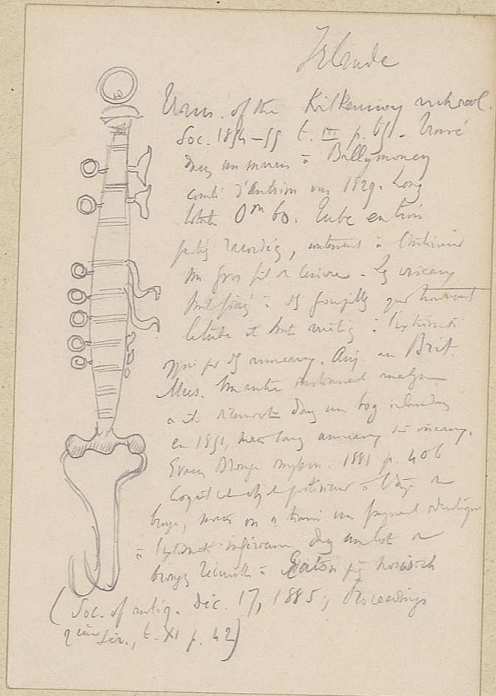 Irlande
Trans. of the Kilkenny archaeol.
Soc. 1854-55 t. III p. 65. Trouvé
dans un marais à Ballymoney
comté d'Antrim vers 1829. Long
totale 0m 60. Tube en trois
parties raccordées, contenant à l'intérieur
un gros fil de cuivre. Les oiseaux
sont fixés à des goupilles qui traversent
le tube et sont rivetés à l'extrémité
opposée par des anneaux. Auj. au Brit.
Mus. Un autre instrument
a été dans un bog irlandais
en 1851, mais sans anneaux ni oiseaux.
Evans Bronze 1881 p. 406
cet objet postérieur à l'âge du
bronze, mais on a trouvé un fragment identique
à l'extrémité inférieure dans un lot de
bronzes à Eaton près Norwich
(Soc. of antiq. Dec. 17, 1885; Proceedings
2ème Ser., t. XI p. 42)